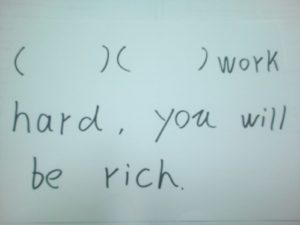 (     )(     ) work
hard, you will
be rich.